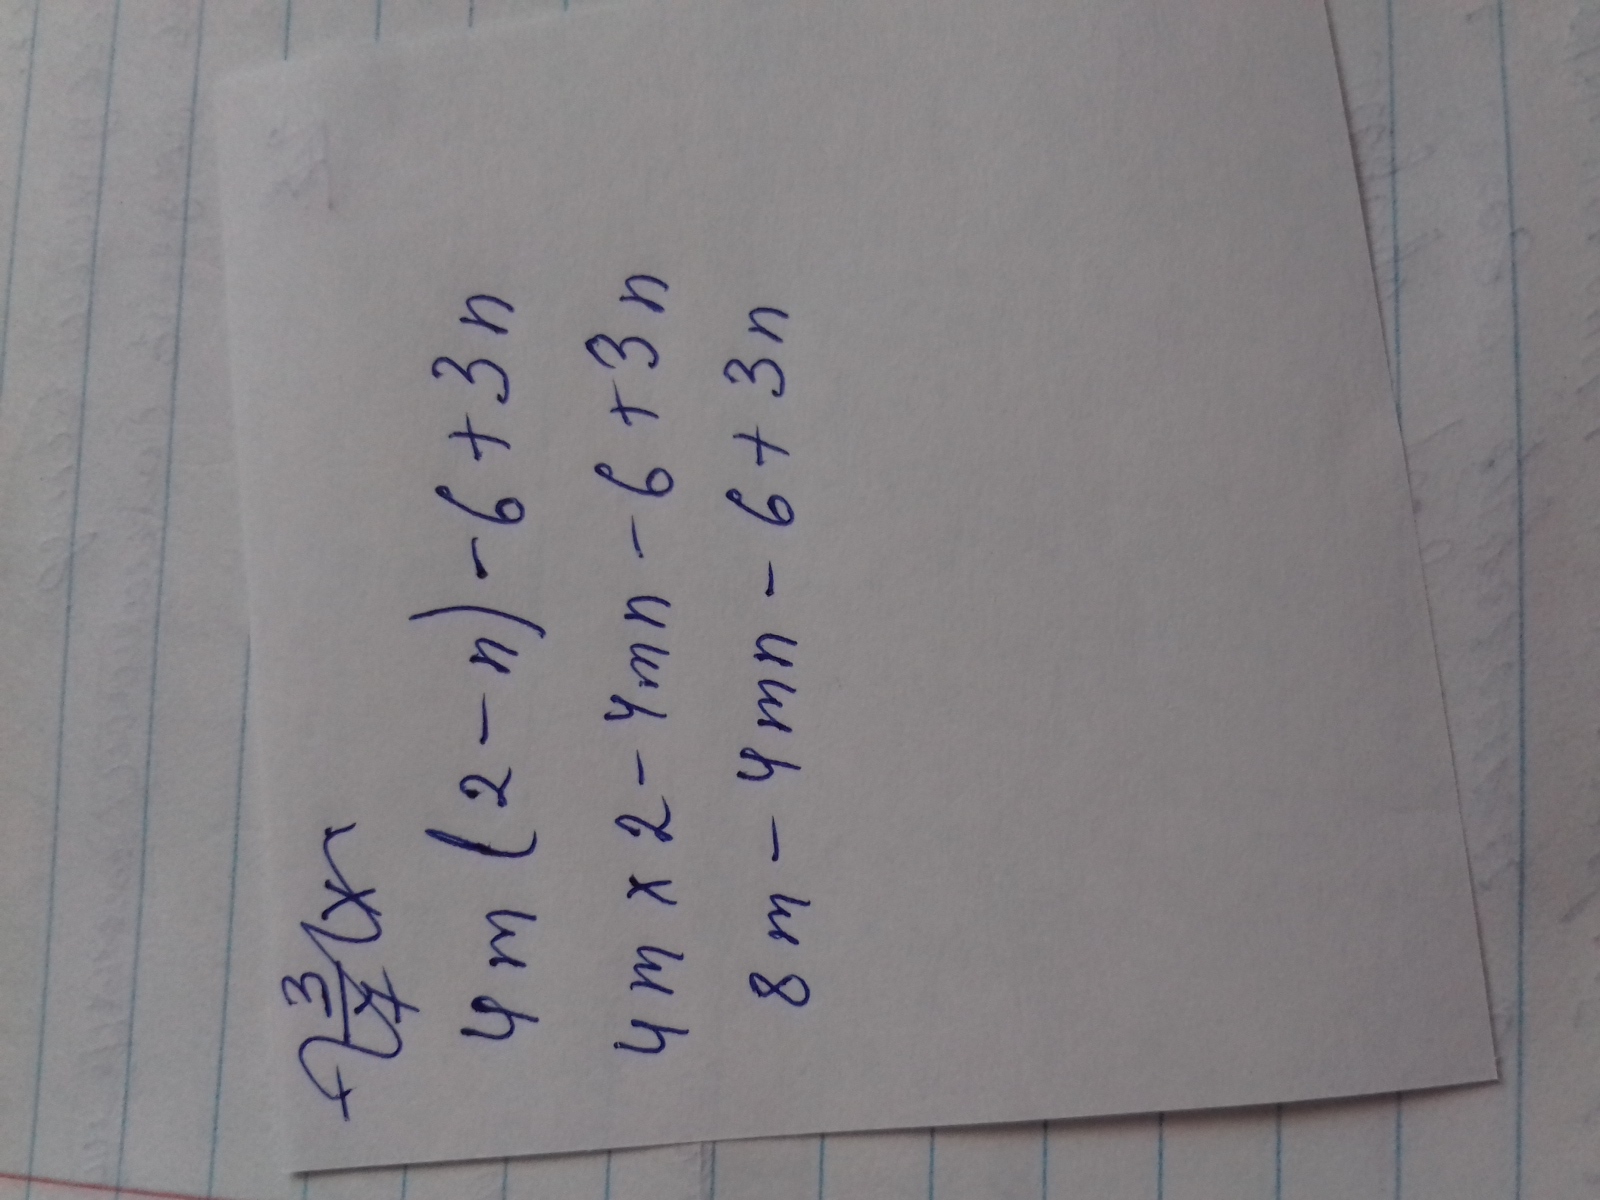 4m (2 - n) - 6 + 3n
4m x 2 - 4mn - 6 + 3n
8m - 4mn - 6 + 3n